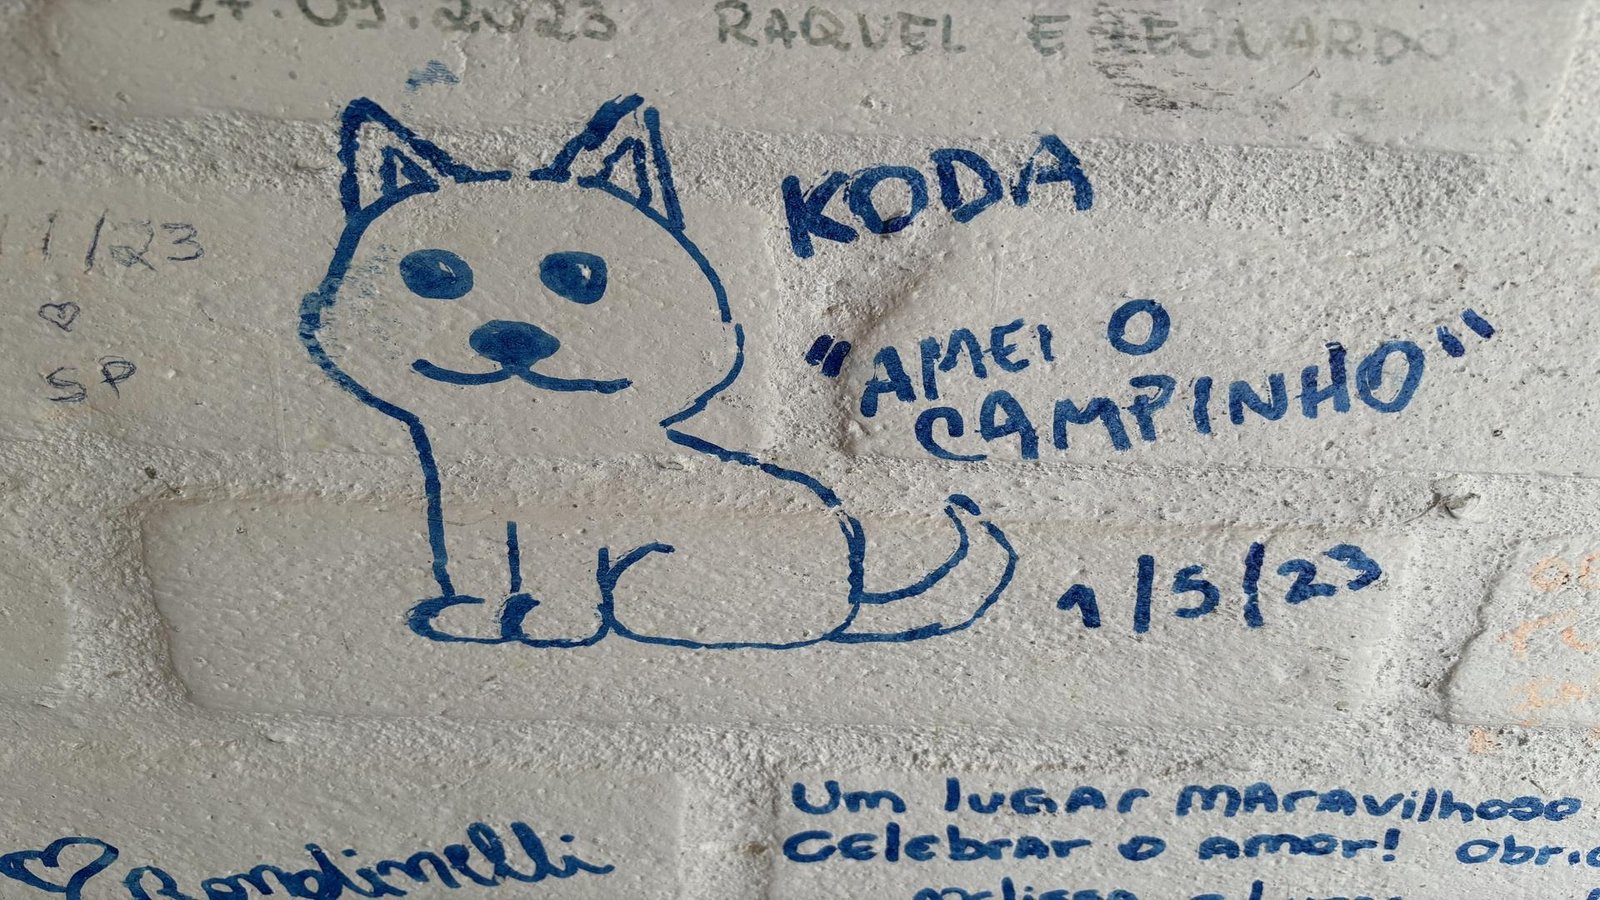 27.09.2023 RAQUEL E LEONARDO
KODA
"AMEI O
CAMPINHO"
1/5/23
11/23
SP
Um lugar maravilhoso
Celebrar o amor!
Rondinelli